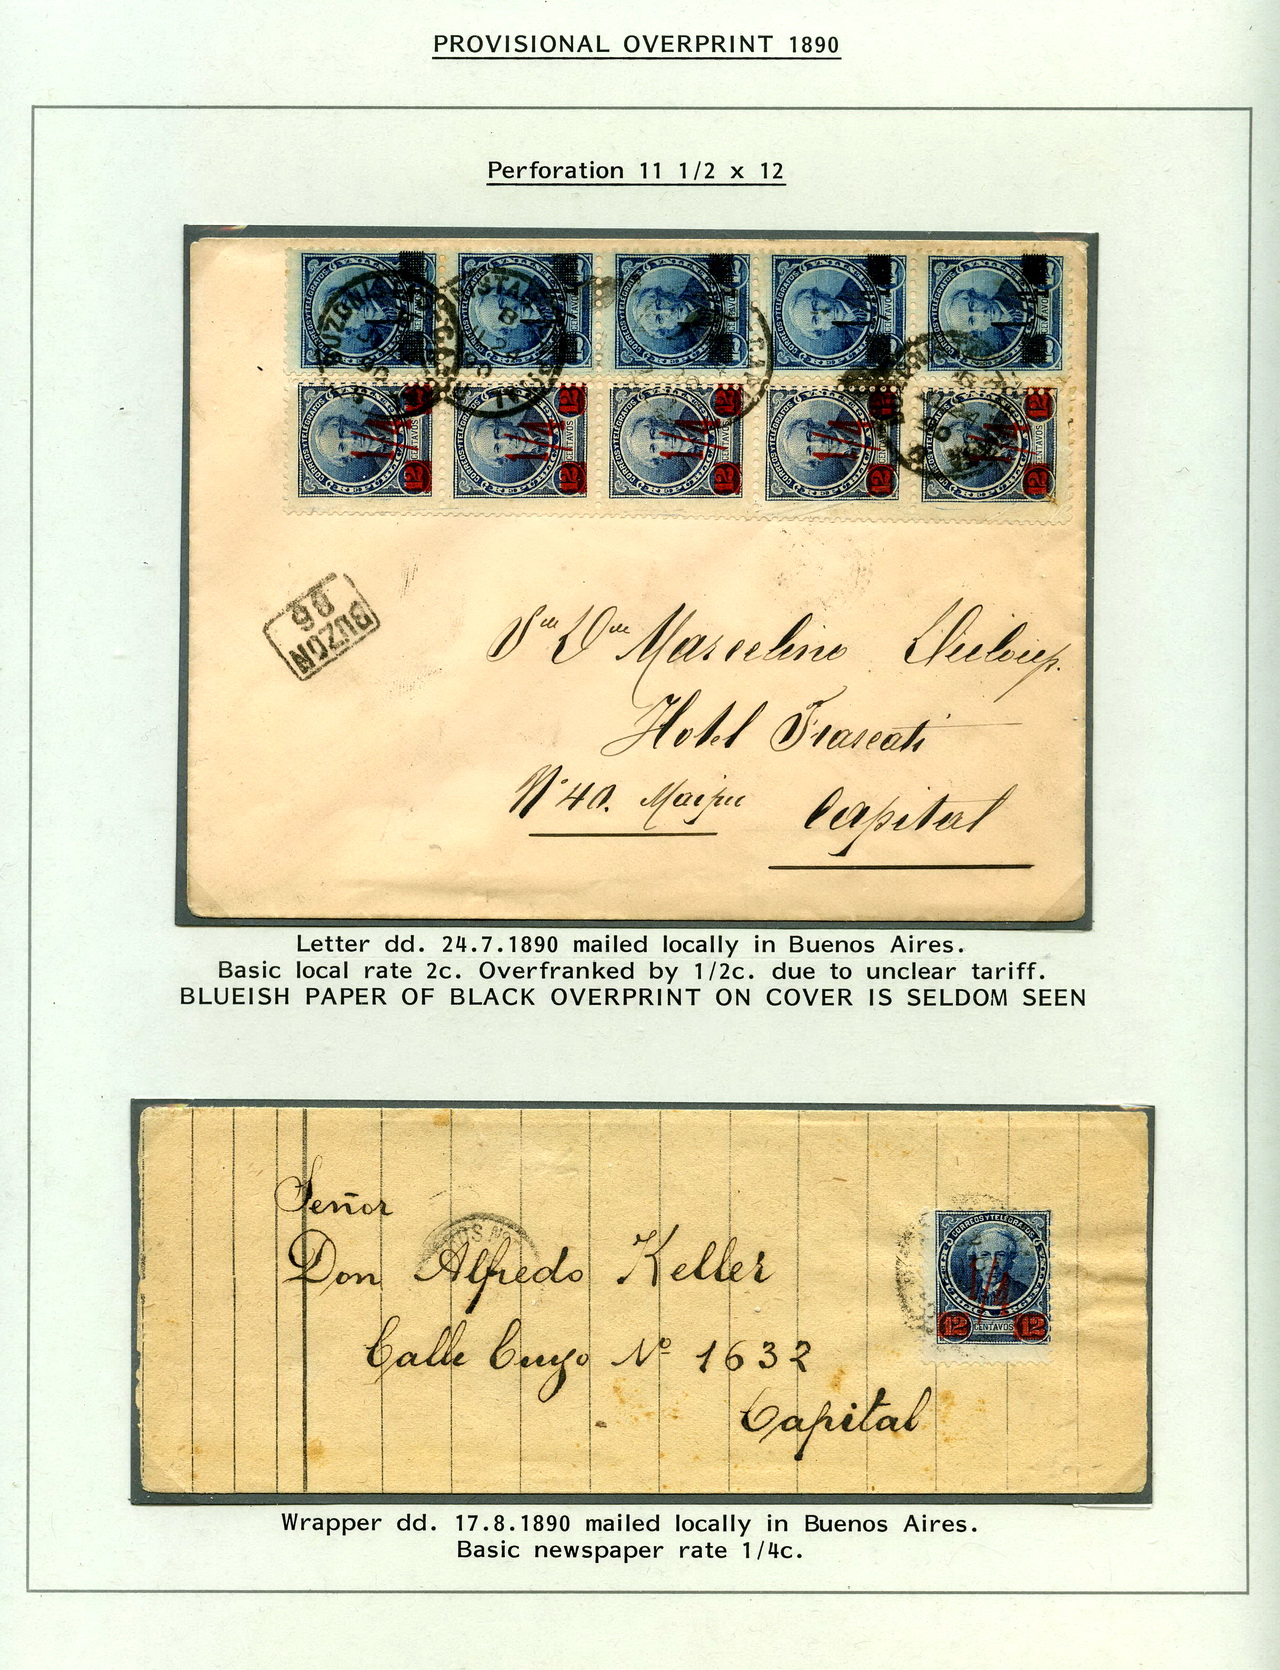 PROVISIONAL OVERPRINT 1890
Perforation 11 1/2 x 12
BUZON 86
Marcelino
Hotel Frascati
Nº 40. Maipu Capital
Letter dd. 24.7.1890 mailed locally in Buenos Aires.
Basic local rate 2c. Overfranked by 1/2c. due to unclear tariff.
BLUEISH PAPER OF BLACK OVERPRINT ON COVER IS SELDOM SEEN
Señor
Don Alfredo Keller
Calle Cuyo Nº 1632
Capital
CORREOS Y TELEGRAFOS
1/4
12 CENTAVOS 12
Wrapper dd. 17.8.1890 mailed locally in Buenos Aires.
Basic newspaper rate 1/4c.